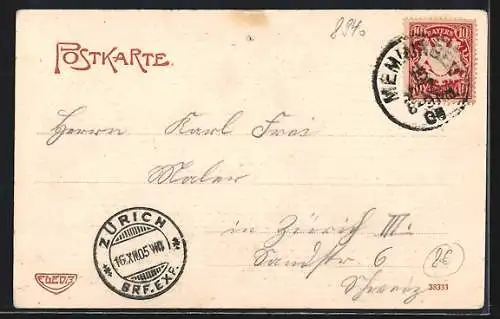 8940
POSTKARTE.
BAYERN
10 10
MEMMINGEN
Herrn Karl Frei
Maler
in Zürich III.
Sandstr 6
Schweiz
ZÜRICH
16.XII.05.VIII
BRF.EXP.
26
38333